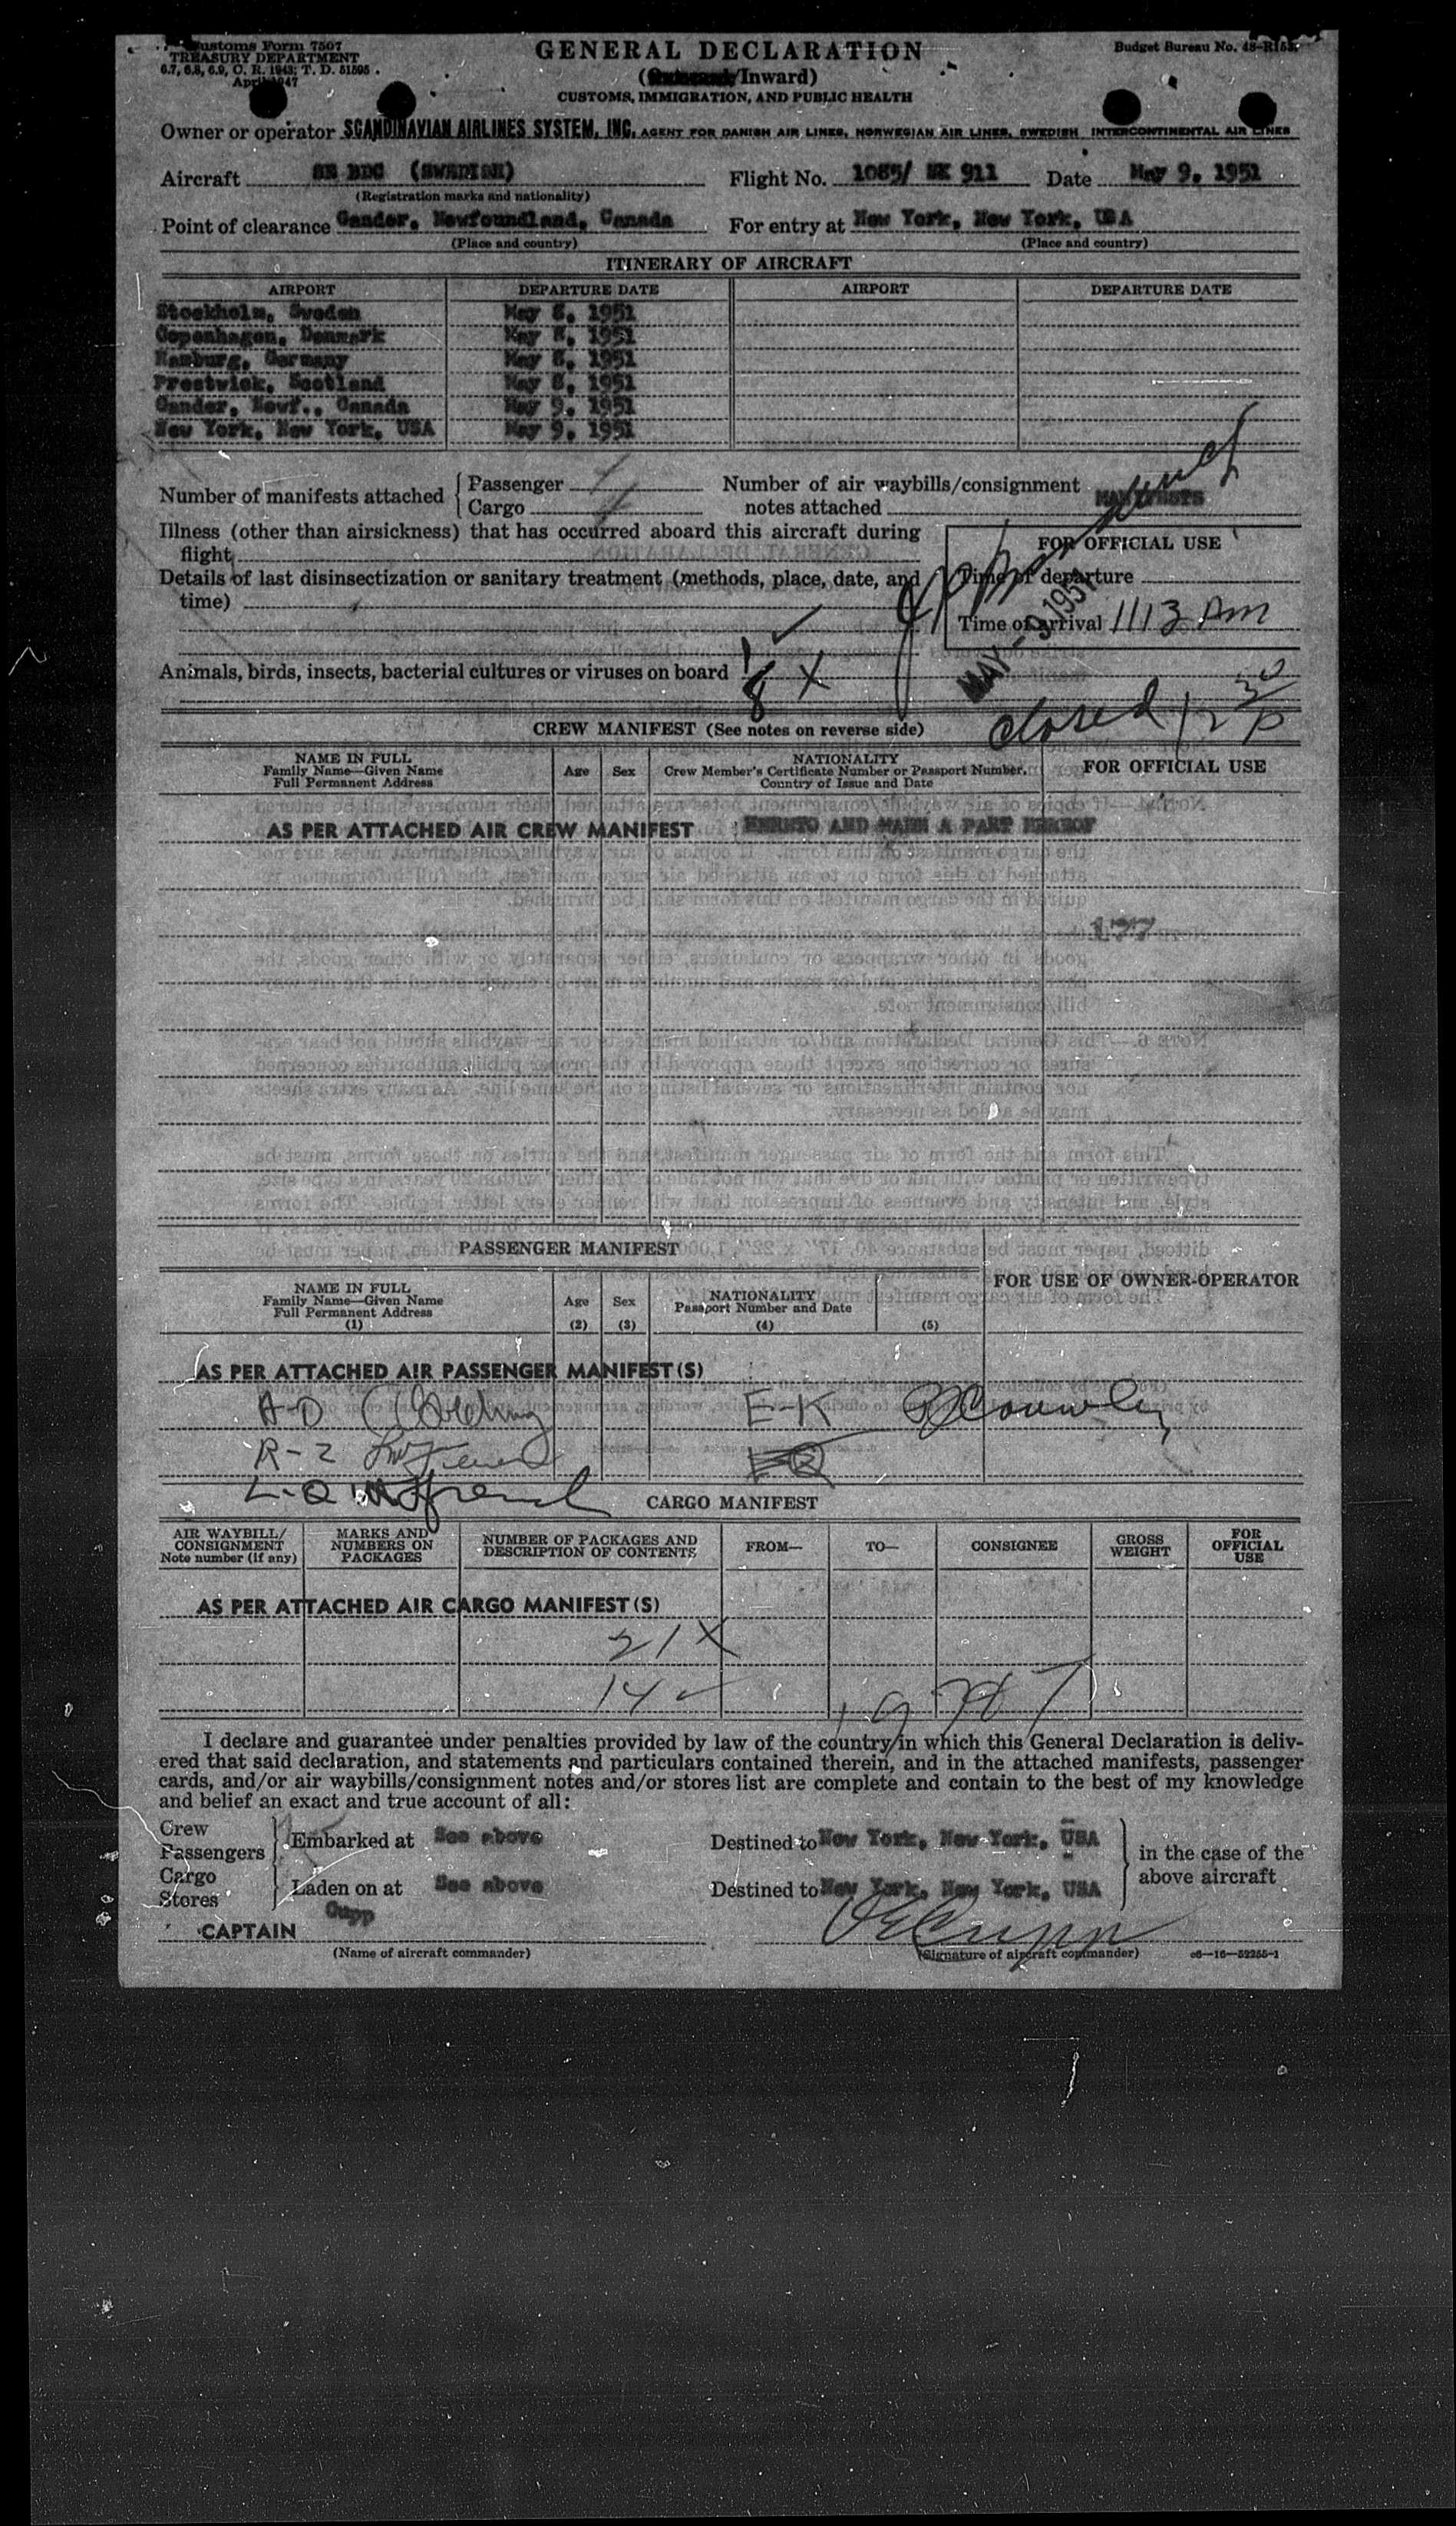 Customs Form 7507
TREASURY DEPARTMENT
6.7, 6.8, 6.9, C. R. 1943; T. D. 51595
April 1947
GENERAL DECLARATION
Budget Bureau No. 48-R153.
(Outward/Inward)
CUSTOMS, IMMIGRATION, AND PUBLIC HEALTH
Owner or operator SCANDINAVIAN AIRLINES SYSTEM, INC. AGENT FOR DANISH AIR LINES, NORWEGIAN AIR LINES, SWEDISH INTERCONTINENTAL AIR LINES
Aircraft SE BDC (SWEDISH) Flight No. 1085/ SK 911 Date May 9, 1951
(Registration marks and nationality)
Point of clearance Gander, Newfoundland, Canada For entry at New York, New York, USA
(Place and country) (Place and country)
ITINERARY OF AIRCRAFT
AIRPORT DEPARTURE DATE AIRPORT DEPARTURE DATE
Stockholm, Sweden May 8, 1951
Copenhagen, Denmark May 8, 1951
Hamburg, Germany May 8, 1951
Prestwick, Scotland May 8, 1951
Gander, Newf., Canada May 9, 1951
New York, New York, USA May 9, 1951
Number of manifests attached Passenger
Cargo
Number of air waybills/consignment
notes attached MANIFESTS
Illness (other than airsickness) that has occurred aboard this aircraft during
flight
Details of last disinsectization or sanitary treatment (methods, place, date, and
time)
FOR OFFICIAL USE
Time of departure
Time of arrival 1113 Am
MAY - 9 1951
Animals, birds, insects, bacterial cultures or viruses on board
8 X
closed 12 30 P
CREW MANIFEST (See notes on reverse side)
NAME IN FULL
Family Name—Given Name
Full Permanent Address
Age Sex
NATIONALITY
Crew Member's Certificate Number or Passport Number.
Country of Issue and Date
FOR OFFICIAL USE
AS PER ATTACHED AIR CREW MANIFEST HERETO AND MADE A PART HEREOF
177
PASSENGER MANIFEST
NAME IN FULL
Family Name—Given Name
Full Permanent Address
(1)
Age
(2)
Sex
(3)
NATIONALITY
Passport Number and Date
(4) (5)
FOR USE OF OWNER-OPERATOR
AS PER ATTACHED AIR PASSENGER MANIFEST(S)
A-D
E-K
R-Z
L-Q
CARGO MANIFEST
AIR WAYBILL/
CONSIGNMENT
Note number (if any)
MARKS AND
NUMBERS ON
PACKAGES
NUMBER OF PACKAGES AND
DESCRIPTION OF CONTENTS
FROM— TO— CONSIGNEE
GROSS
WEIGHT
FOR
OFFICIAL
USE
AS PER ATTACHED AIR CARGO MANIFEST(S)
21 X
14 ✓
I declare and guarantee under penalties provided by law of the country in which this General Declaration is deliv-
ered that said declaration, and statements and particulars contained therein, and in the attached manifests, passenger
cards, and/or air waybills/consignment notes and/or stores list are complete and contain to the best of my knowledge
and belief an exact and true account of all:
Crew
Passengers
Cargo
Stores
Embarked at See above Destined to New York, New York, USA
Laden on at See above Destined to New York, New York, USA
in the case of the
above aircraft
CAPTAIN Cupp
(Name of aircraft commander) (Signature of aircraft commander) c6—16—52255-1